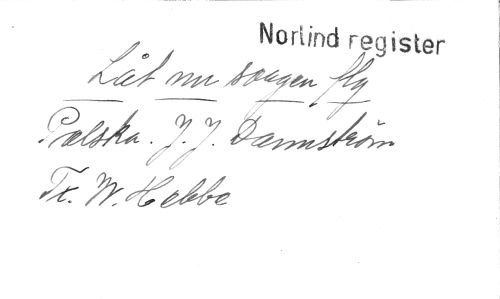 Norlind register
Låt nu sorgen fly
Polska. J. J. Dannström
Tr. W. Hebbe